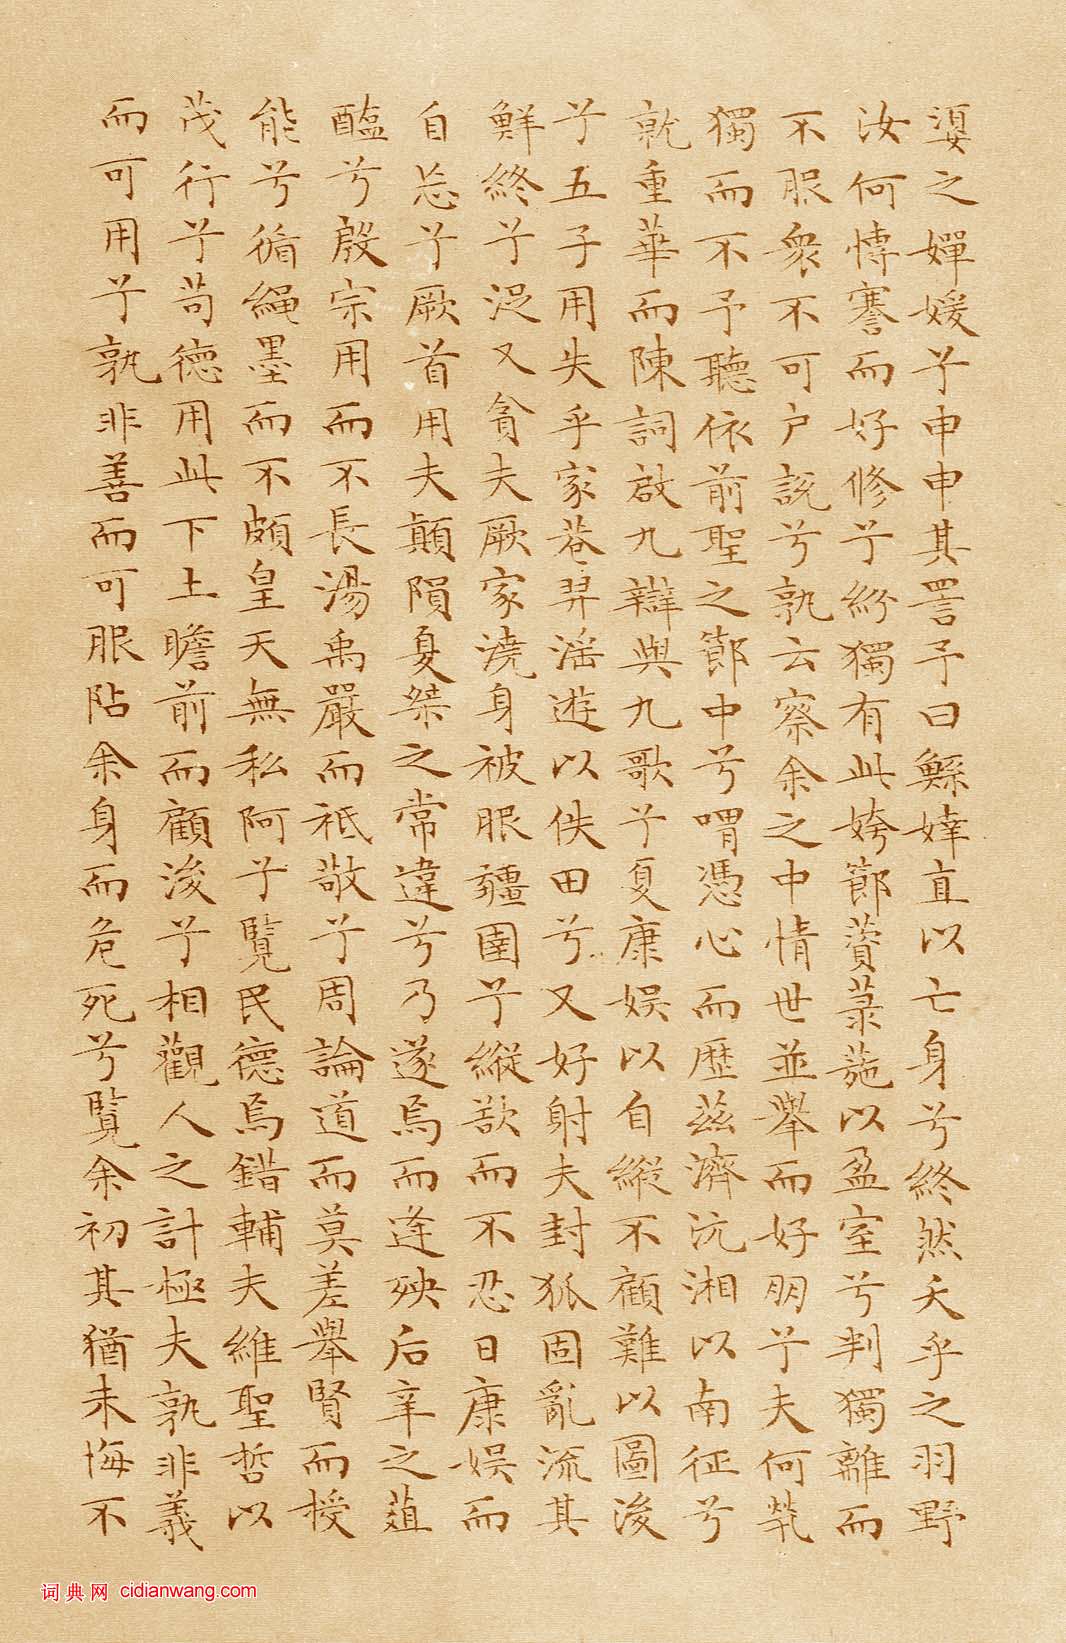 嬃之嬋媛兮申申其詈予曰鯀婞直以亡身兮終然夭乎之羽野
汝何博謇而好修兮紛獨有此姱節薋菉葹以盈室兮判獨離而
不服衆不可户說兮孰云察余之中情世並舉而好朋兮夫何煢
獨而不予聽依前聖之節中兮喟憑心而歴茲濟沅湘以南征兮
就重華而陳詞啟九辯與九歌兮夏康娛以自縱不顧難以圖後
兮五子用失乎家巷羿淫遊以佚田兮又好射夫封狐固亂流其
鮮終兮浞又貪夫厥家澆身被服彊圉兮縱欲而不忍日康娛而
自忘兮厥首用夫顛隕夏桀之常違兮乃遂焉而逢殃后辛之菹
醢兮殷宗用而不長湯禹嚴而祗敬兮周論道而莫差舉賢而授
能兮循繩墨而不頗皇天無私阿兮覽民德焉錯輔夫維聖哲以
茂行兮苟德用此下土瞻前而顧後兮相觀人之計極夫孰非義
而可用兮孰非善而可服阽余身而危死兮覽余初其猶未悔不
词典网 cidianwang.com